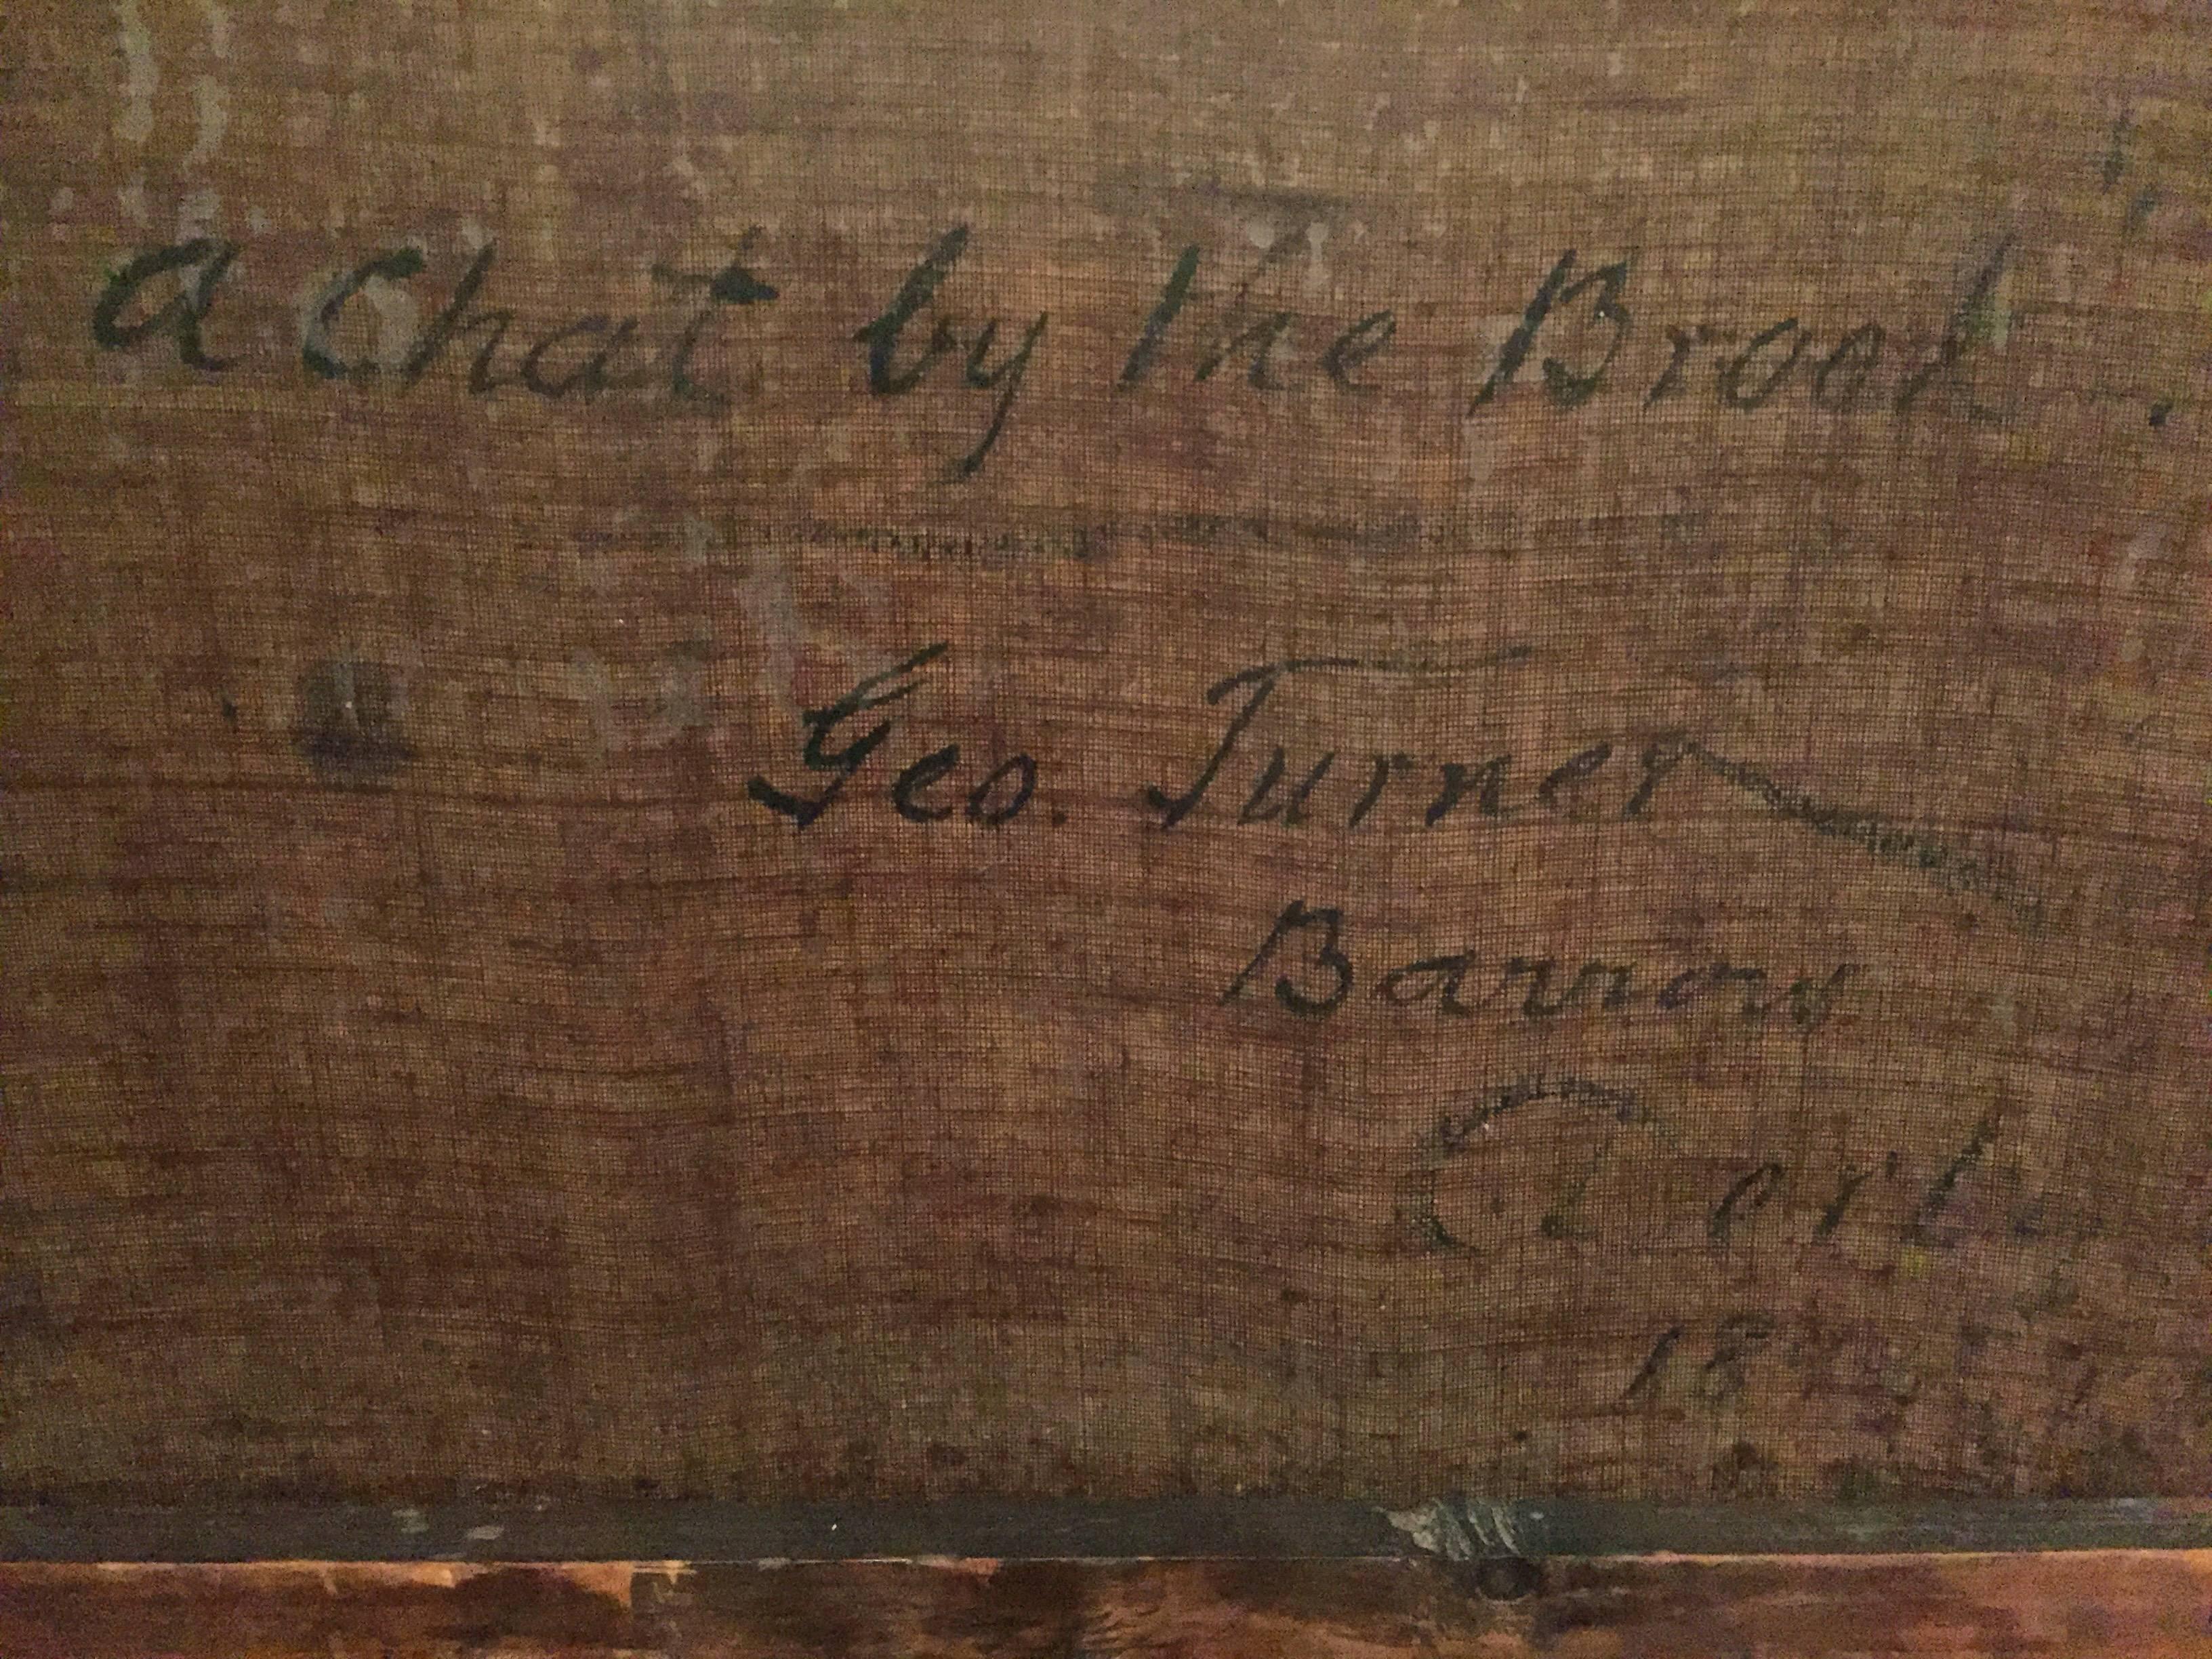 A Chat by The Brook".
Geo. Turner
Barrow
Derby